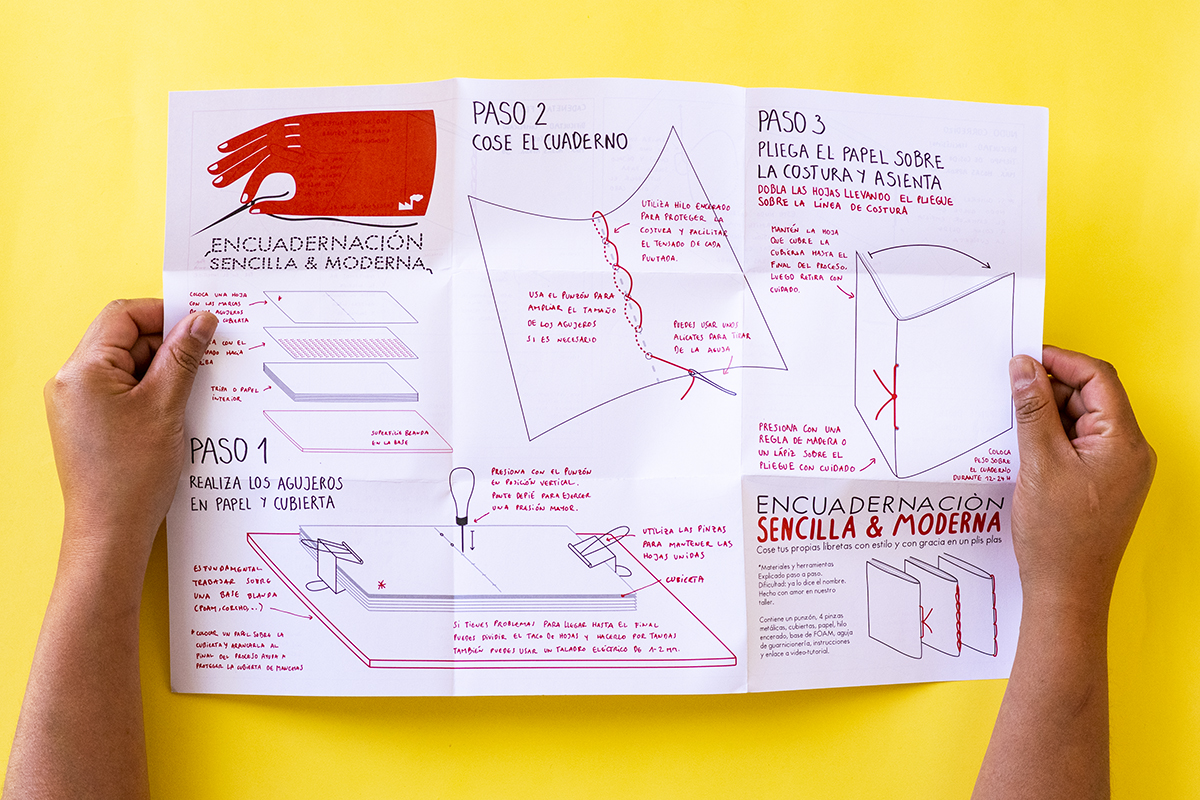 ENCUADERNACIÓN
SENCILLA & MODERNA
COLOCA UNA HOJA
CON LAS MARCAS
AGUJEROS
CUBIERTA
CON EL
HACIA
TRIPA O PAPEL
INTERIOR
SUPERFICIE BLANDA
EN LA BASE
PASO 1
REALIZA LOS AGUJEROS
EN PAPEL Y CUBIERTA
PRESIONA CON EL PUNZÓN
EN POSICIÓN VERTICAL.
PONTE DE PIÉ PARA EJERCER
UNA PRESIÓN MAYOR.
UTILIZA LAS PINZAS
PARA MANTENER LAS
HOJAS UNIDAS
CUBIERTA
ES FUNDAMENTAL
TRABAJAR SOBRE
UNA BASE BLANDA
(FOAM, CORCHO,...)
* COLOCAR UN PAPEL SOBRE LA
CUBIERTA Y ARRANCARLA AL
FINAL DEL PROCESO AYUDA A
PROTEGER LA CUBIERTA DE MANCHAS
SI TIENES PROBLEMAS PARA LLEGAR HASTA EL FINAL
PUEDES DIVIDIR EL TACO DE HOJAS Y HACERLO POR TANDAS
TAMBIÉN PUEDES USAR UN TALADRO ELÉCTRICO DE 1-2 MM.
PASO 2
COSE EL CUADERNO
UTILIZA HILO ENCERADO
PARA PROTEGER LA
COSTURA Y FACILITAR
EL TENSADO DE CADA
PUNTADA.
USA EL PUNZÓN PARA
AMPLIAR EL TAMAÑO
DE LOS AGUJEROS
SI ES NECESARIO
PUEDES USAR UNOS
ALICATES PARA TIRAR
DE LA AGUJA
PASO 3
PLIEGA EL PAPEL SOBRE
LA COSTURA Y ASIENTA
DOBLA LAS HOJAS LLEVANDO EL PLIEGUE
SOBRE LA LÍNEA DE COSTURA
MANTÉN LA HOJA
QUE CUBRE LA
CUBIERTA HASTA EL
FINAL DEL PROCESO.
LUEGO RETIRA CON
CUIDADO.
PRESIONA CON UNA
REGLA DE MADERA O
UN LÁPIZ SOBRE EL
PLIEGUE CON CUIDADO
COLOCA
PESO SOBRE
EL CUADERNO
DURANTE 12-24 H
ENCUADERNACIÓN
SENCILLA & MODERNA
Cose tus propias libretas con estilo y con gracia en un plis plas
*Materiales y herramientas
Explicado paso a paso.
Dificultad: ya lo dice el nombre.
Hecho con amor en nuestro
taller.
Contiene un punzón, 4 pinzas
metálicas, cubiertas, papel, hilo
encerado, base de FOAM, aguja
de guarnicionería, instrucciones
y enlace a video-tutorial.